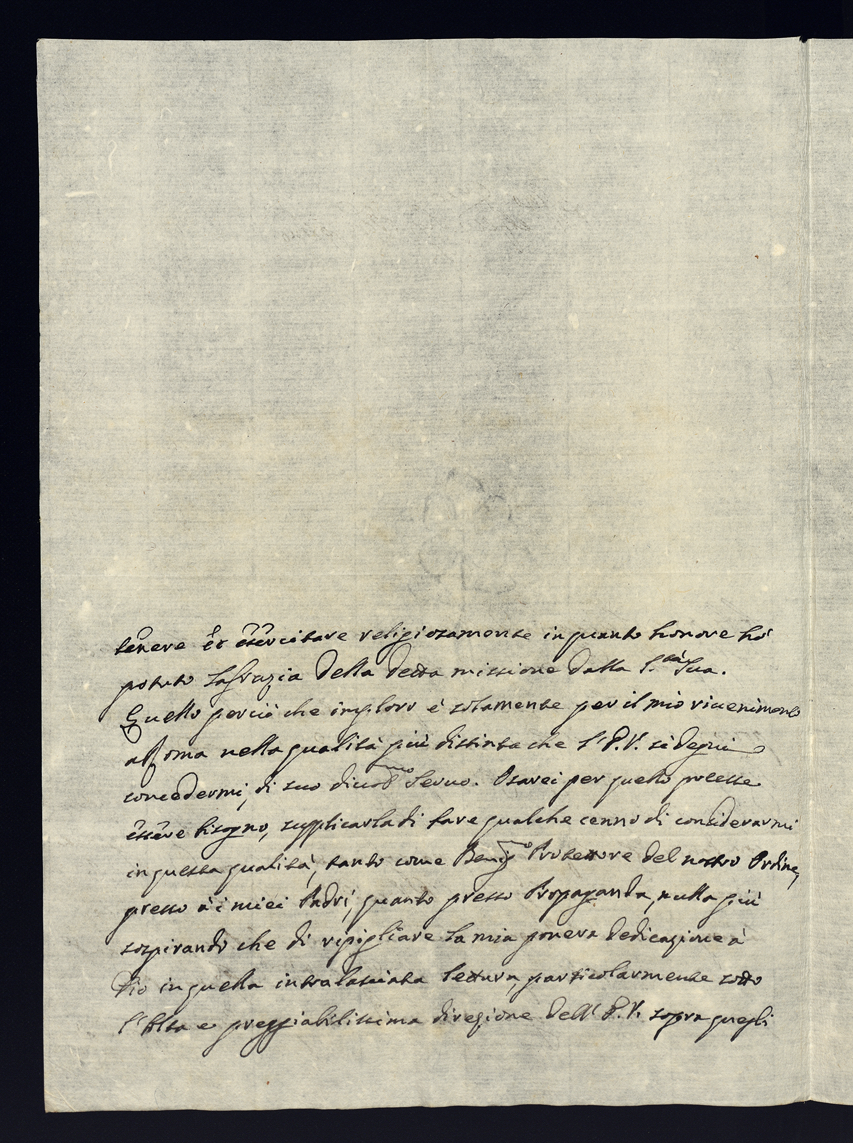 tenere et esercitare religiosamente in quanto honore hò
potuto la grazia della detta missione dalla S.tà Sua.
Quello perciò che imploro è solamente per il mio rivenimento
a Roma nella qualità più distinta che l' P.V. si degni
concedermi, di suo divot.mo Servo. Osarei per quello potesse
essere bisogno, supplicarla di fare qualche cenno di considerarmi
in questa qualità, tanto come Benig.mo Protettore del nostro Ordine,
presso à i miei Padri, quanto presso Propaganda, nulla più
sospirando che di ripigliare la mia povera dedicazione à
Dio in quella intralasciata lettura, particolarmente sotto
l'Alta e preggiabilissima direzione dell' P.V. sopra quegli